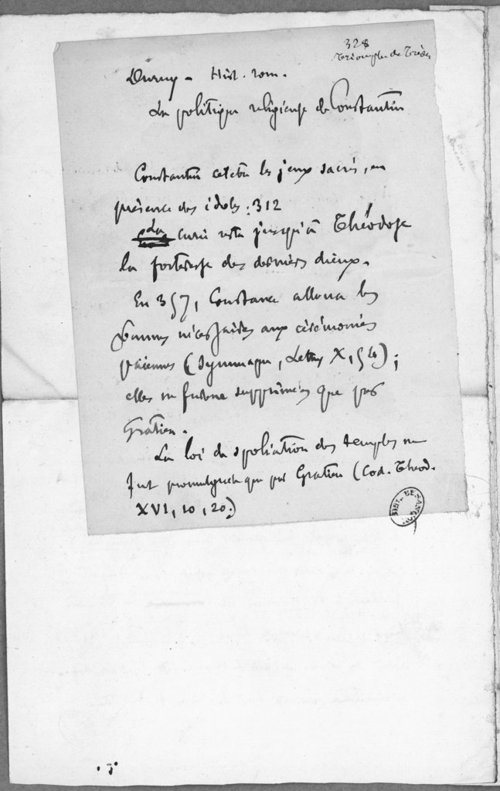 328
Triomphe de Trèves
Duruy - Hist. rom.
La politique religieuse de Constantin
Constantin célèbre les jeux sacrés, en
présence des idoles : 312
La curie resta jusqu'à Théodose
la forteresse des derniers dieux.
En 357, Constance alloua les
sommes nécessaires aux cérémonies
païennes (Symmaque, Lettres X, 54) ;
elles ne furent supprimées que par
Gratien.
La loi de spoliation des temples ne
fut promulguée que par Gratien (Cod. Theod.
XVI, 10, 20.)